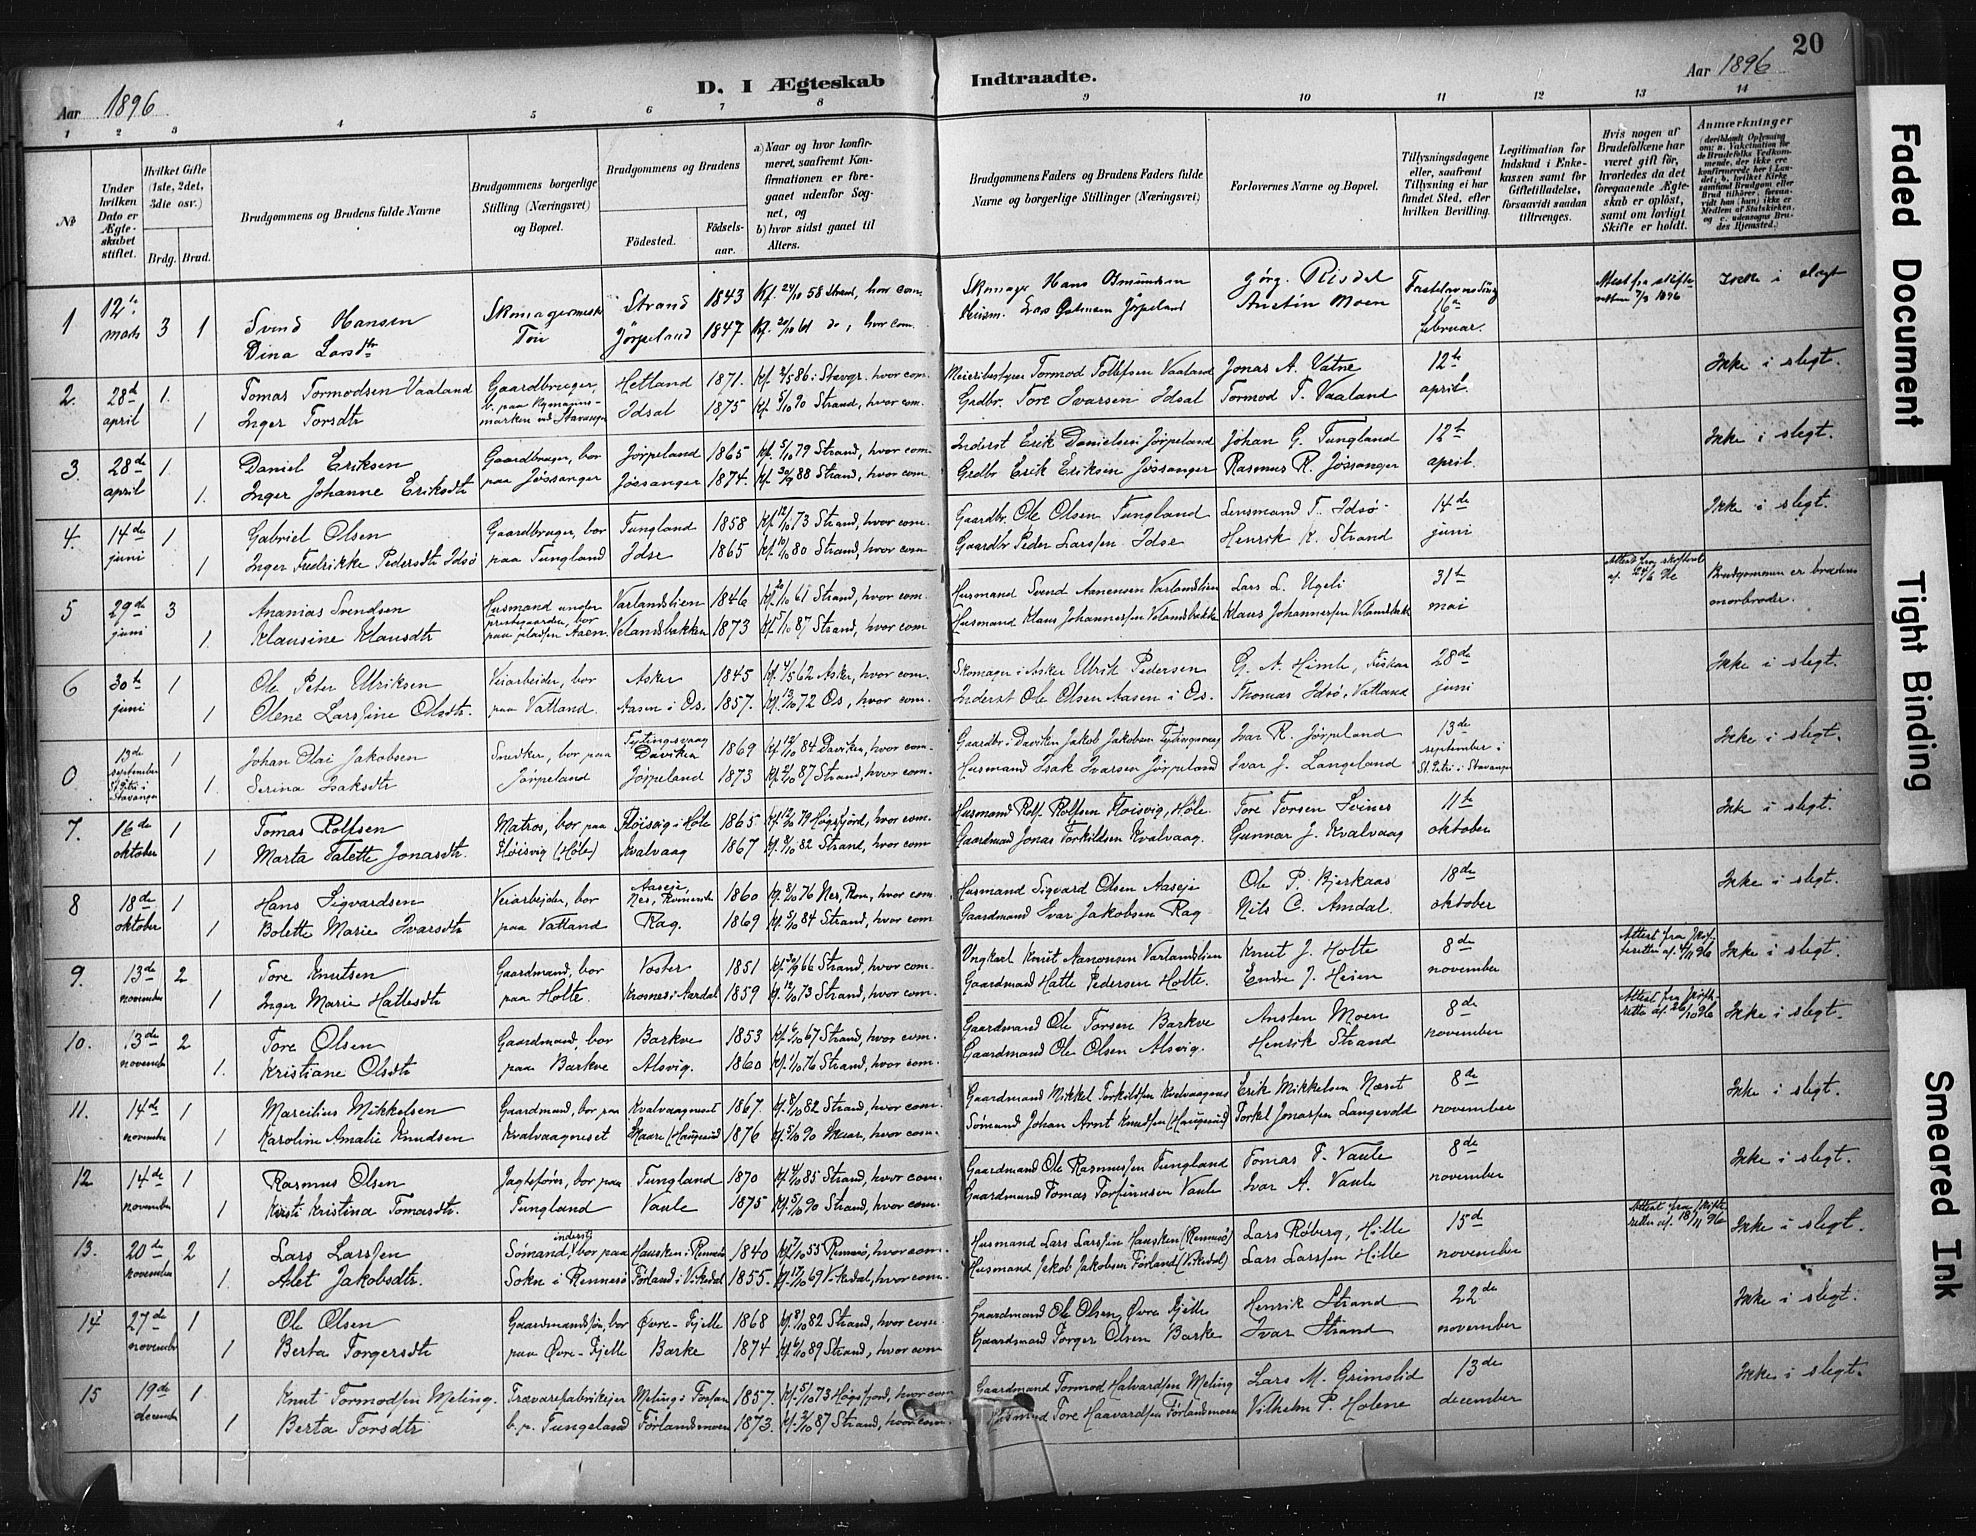 20
D. I Ægteskab Indtraadte.
Aar 1896
Aar 1896
1 2 3 4 5 6 7 8 9 10 11 12 13 14
№
Under hvilken Dato er Ægteskabet stiftet.
Hvilket Gifte (1ste, 2det, 3die osv.)
Brdg. Brud.
Brudgommens og Brudens fulde Navne
Brudgommens borgerlige Stilling (Næringsvei) og Bopæl.
Brudgommens og Brudens
Fødested.
Fødselsaar.
a) Naar og hvor konfirmeret, saafremt Konfirmationen er foregaaet udenfor Sognet, og
b) hvor sidst gaaet til Alters.
Brudgommens Faders og Brudens Faders fulde Navne og borgerlige Stillinger (Næringsvei)
Forlovernes Navne og Bopæl.
Tillysningsdagene eller, saafremt Tillysning ei har fundet Sted, efter hvilken Bevilling.
Legitimation for Indskud i Enkekassen samt for Giftetilladelse, forsaavidt saadan tiltrænges.
Hvis nogen af Brudefolkene har været gift før, hvorledes da det foregaaende Ægteskab er opløst, samt om lovligt Skifte er holdt.
Anmærkninger (deriblandt Oplysning om: a. Vakcination for de Brudefolks Vedkommende, der ikke ere konfirmerede her i Landet; b. hvilket Kirkesamfund Brudgom eller Brud tilhører, forsaavidt han (hun) ikke er Medlem af Statskirken, og c. udensogns Brudes Hjemsted.)
1 12te marts 3 Svend Hansen Skomagermester Strand 1843 Kf. 24/10 58 Strand, hvor com. Skomager Hans Osmundsen Jørg. Risdal Fastelavnssøndag 16de februar. Attest fra skifteretten 7/3 1896 Ikke i slegt
1 Dina Larsdtr Tou Jørpeland 1847 Kf. 20/10 61 do, hvor com. Husm. Lars Jørpeland Austin Moen
2. 28de april 1. Tomas Tormodsen Vaaland Gaardbruger, Hetland 1871. Kf. 2/5 86 i Stavgr. hvor com. Meieribestyrer Tormod Tollefsen Vaaland Jonas A. Vatne 12te april. Ikke i slegt.
1 Inger Torsdtr b. paa marken ved Stavanger Idsal 1875 Kf. 5/10 90 Strand, hvor com. Grdbr. Tore Ivarsen Idsal Tormod T. Vaaland
3. 28de april 1. Daniel Eriksen Gaardbruger, bor Jørpeland 1865 Kf. 5/10 79 Strand, hvor com. Inderst Erik Danielsen Jørpeland Johan G. Tungland 12te april. Ikke i slegt.
1. Inger Johanne Eriksdtr paa Jøssanger Jøssanger 1874. Kf. 30/9 88 Strand, hvor com. Grdbr Erik Eriksen Jøssanger Rasmus R. Jøssanger
4. 14de juni 1 Gabriel Olsen Gaardbruger, bor Tungland 1858 Kf. 12/10 73 Strand, hvor com. Gaardbr. Ole Olsen Tungland Lensmand T. Idsø 14de juni Ikke i slegt.
1 Inger Fredrikke Pedersdtr Idsø paa Tungland Idse 1865 Kf. 10/10 80 Strand, hvor com Gaardbr Peder Larssen Idse Henrik K. Strand
5 29de juni 3 Ananias Svendsen Husmand under Varlandslien 1846 Kf. 20/10 61 Strand, hvor com. Husmand Svend Aanensen Varlandslien Lars L. Ugeli 31te mai Attest fra skifteret af 24/6 96 Brudgommen er brudens morbroder.
1. Klausine Klausdtr prestegaarden, bor paa pladsen Aaen Velandsbakken 1873 Kf. 5/10 87 Strand, hvor com Husmand Klaus Johannessen Velandsbakke Klaus Johannessen Velandsbakk
6 30te juni 1 Ole Peter Ulriksen Veiarbeider, bor Asker 1845 Kf. 4/5 62 Asker, hvor com. Skomager i Asker Ulrik Pedersen G. A. Himle, Fiskaa 28de juni Ikke i slegt.
1 Olene Larssine Olsdtr. paa Vatland. Aasen i Os. 1857. Kf. 13/10 72 Os, hvor com. Inderst Ole Olsen Aasen i Os. Thomas Idsø, Vatland
0. 13de september St. Petri i Stavanger 1 Johan Olai Jakobsen Snedker, bor paa Daviken 1869 Kf. 12/10 84 Daviken, hvor com. Gaardbr i Daviken Jakob Jakobsen Ivar R. Jørpeland 13de september i St. Petri i Stavanger Ikke i slegt.
1. Serina Isaksdtr Jørpeland Jørpeland 1873 Kf. 2/10 87 Strand, hvor com. Husmand Isak Ivarsen Jørpeland Ivar J. Langeland
7. 16de oktober 1 Tomas Rolfsen Matros, bor paa Fløisvig i Høle 1865 Kf. 12/10 79 Høgsfjord, hvor com. Husmand Rolf Rolfsen Fløisvig, Høle Tore Torsen Svines 11te oktober Ikke i slegt.
1 Marta Talette Jonasdtr. Fløisvig (Høle) Kvalvaag 1867 Kf. 8/10 82 Strand, hvor com Gaardmand Jonas Torkildsen Kvalvaag. Gunnar J. Kvalvaag
8 18de oktober 1 Hans Sigvardsen Veiarbeider, bor Aaseje, Nes, Romerike 1860 Kf. 8/10 76 Nes, Rom, hvor com. Husmand Sigvard Olsen Aaseje Ole P. Bjerkaas 18de oktober Ikke i slegt.
1 Bolette Marie Ivarsdtr paa Vatland Rag. 1869 Kf. 5/10 84 Strand, hvor com Gaardmand Ivar Jakobsen Rag Nils C. Amdal.
9. 13de november 2 Tore Knutsen Gaardmand, bor Voster 1851 Kf. 30/9 66 Strand, hvor com. Ungkarl Knut Aanonsen Varlandslien Knut J. Holte 8de november Attest fra skifteretten af 4/11 96 Ikke i slegt.
1 Inger Marie Hattesdtr paa Holte. Krosnes i Aardal 1859 Kf. 12/10 73 Strand, hvor com. Gaardmand Hatte Pedersen Holte. Endre J. Heien
10. 13de november 2 Tore Olsen Gaardmand, bor Barkve 1853 Kf. 6/10 67 Strand, hvor com. Gaardmand Ole Torsen Barkve Ansten Moen 8de november Attest fra skifteretten af 26/10 96 Ikke i slegt.
1. Kristiane Olsdtr paa Barkve Alsvig. 1860 Kf. 1/10 76 Strand, hvor com. Gaardmand Ole Olsen Alsvig. Henrik Strand
11. 14de november 1 Marcilius Mikkelsen Gaardmand, bor paa Kvalvaagneset 1867. Kf. 8/10 82 Strand, hvor com. Gaardmand Mikkel Torkildsen Kvalvaagnes Erik Mikkelsen Næset 8de november Ikke i slegt.
1 Karoline Amalie Knudsen Kvalvaagneset Skaare (Haugesund) 1876 Kf. 5/10 90 Skaar, hvor com. Sømand Johan Arnt Knudsen (Haugesund) Torkel Jonassen Langevold
12 14de november 1 Rasmus Olsen Jagtefører, bor paa Tungland 1870 Kf. 4/10 85 Strand, hvor com. Gaardmand Ole Rasmussen Tungland Tomas T. Vaule 8de november Ikke i slegt.
1 Kirsti Kristina Tomasdtr. Tungland Vaule 1875 Kf. 5/10 90 Strand, hvor com. Gaardmand Tomas Torfinnsen Vaule Ivar A. Vaule
13. 20de november 2 Lars Larssen Sømand, inderst, bor paa Hausken i Rennesø 1840 Rennesø, hvor com. Husmand Lars Larssen Hausken (Rennesø) Lars Røberg, Hille 15de november Attest fra skifteretten af 18/11 96 Ikke i slegt.
1. Alet Jakobsdtr. Sokn i Rennesø Førland i Vikedal 1855. Kf. 17/10 69 Vikedal, hvor com. Husmand Jakob Jakobsen Førland (Vikedal) Lars Larssen Hille
14 27de november 1 Ole Olsen Gaardmandssøn, bor Øvre-Fjelle 1868 Kf. 8/10 82 Strand, hvor com. Gaardmand Ole Olsen Øvre Fjelle Henrik Strand 22de november Ikke i slegt.
1 Berta Torgersdtr paa Øvre-Fjelle Barke 1874 Kf. 6/10 89 Strand, hvor com Gaardmand Torger Olsen Barke Ivar Strand
15 19de december 1. Knut Tormodsen Meling. Trævarefabrikeier Meling i Forsan 1857. Kf. 5/10 73 Høgsfjord, hvor com Gaardmand Tormod Halvardsen Meling Lars M. Grimslid 13de december Ikke i slegt.
1 Berta Torsdtr b. p. Tungeland Førlandsmoen 1873. Kf. 2/10 87 Strand, hvor com. Husmand Tore Haavardsen Førlandsmoen Vilhelm P. Holene
Faded Document
Tight Binding
Smeared Ink